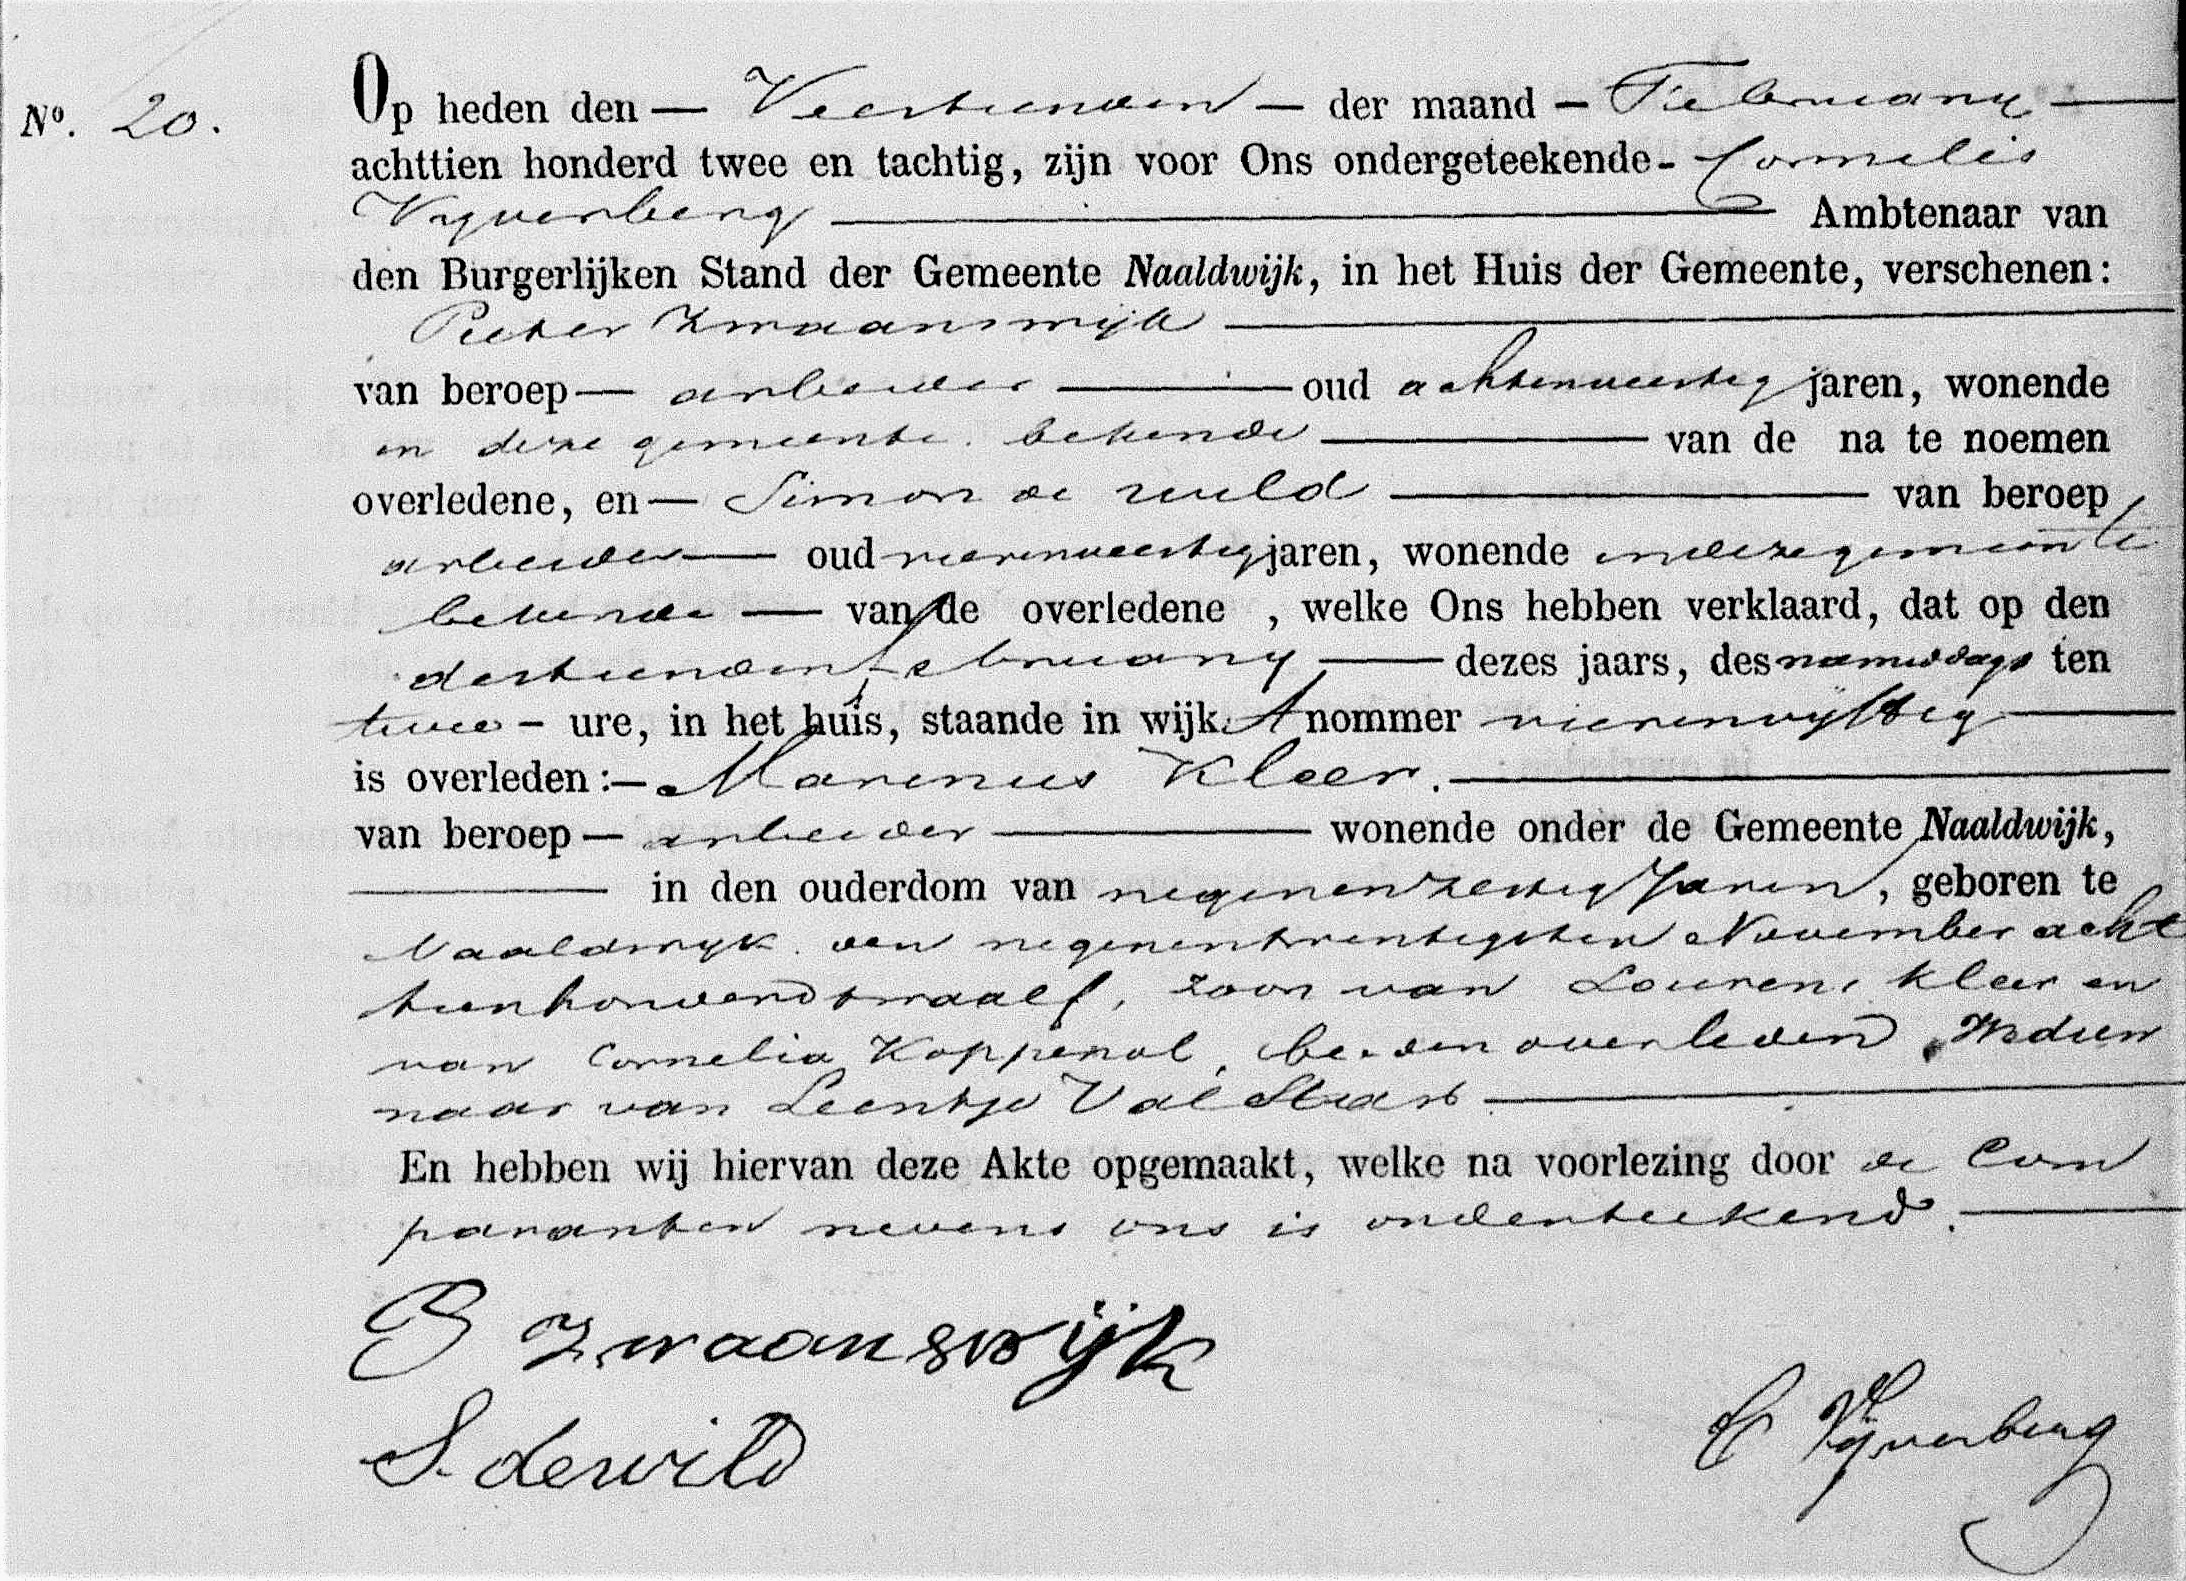 Nº. 20.
Op heden den — Veertienden — der maand — Februarij —
achttien honderd twee en tachtig, zijn voor Ons ondergeteekende - Cornelis
Vijverberg — Ambtenaar van
den Burgerlijken Stand der Gemeente Naaldwijk, in het Huis der Gemeente, verschenen:
Pieter Zwaanswijk —
van beroep — arbeider — oud achtenveertig jaren, wonende
in deze gemeente. bekende — van de na te noemen
overledene, en — Simon de Wild — van beroep
arbeider — oud vierenveertig jaren, wonende in deze gemeente
bekende — van de overledene , welke Ons hebben verklaard, dat op den
dertienden februarij — dezes jaars, des namiddags ten
twee - ure, in het huis, staande in wijk A nommer vierenvijftig —
is overleden: — Marinus Kleer. —
van beroep — arbeider — wonende onder de Gemeente Naaldwijk,
— in den ouderdom van negenenzestig Jaren, geboren te
Naaldwijk. den negenentwintigsten November acht
tienhonderd twaalf, zoon van Lourens Kleer en
van Cornelia Koppenol, beiden overleden, Weduw
naar van Leentje Valstar —
En hebben wij hiervan deze Akte opgemaakt, welke na voorlezing door de Com
paranten nevens ons is onderteekend. —
P Zwaanswijk
S. de wild
C Vijverberg